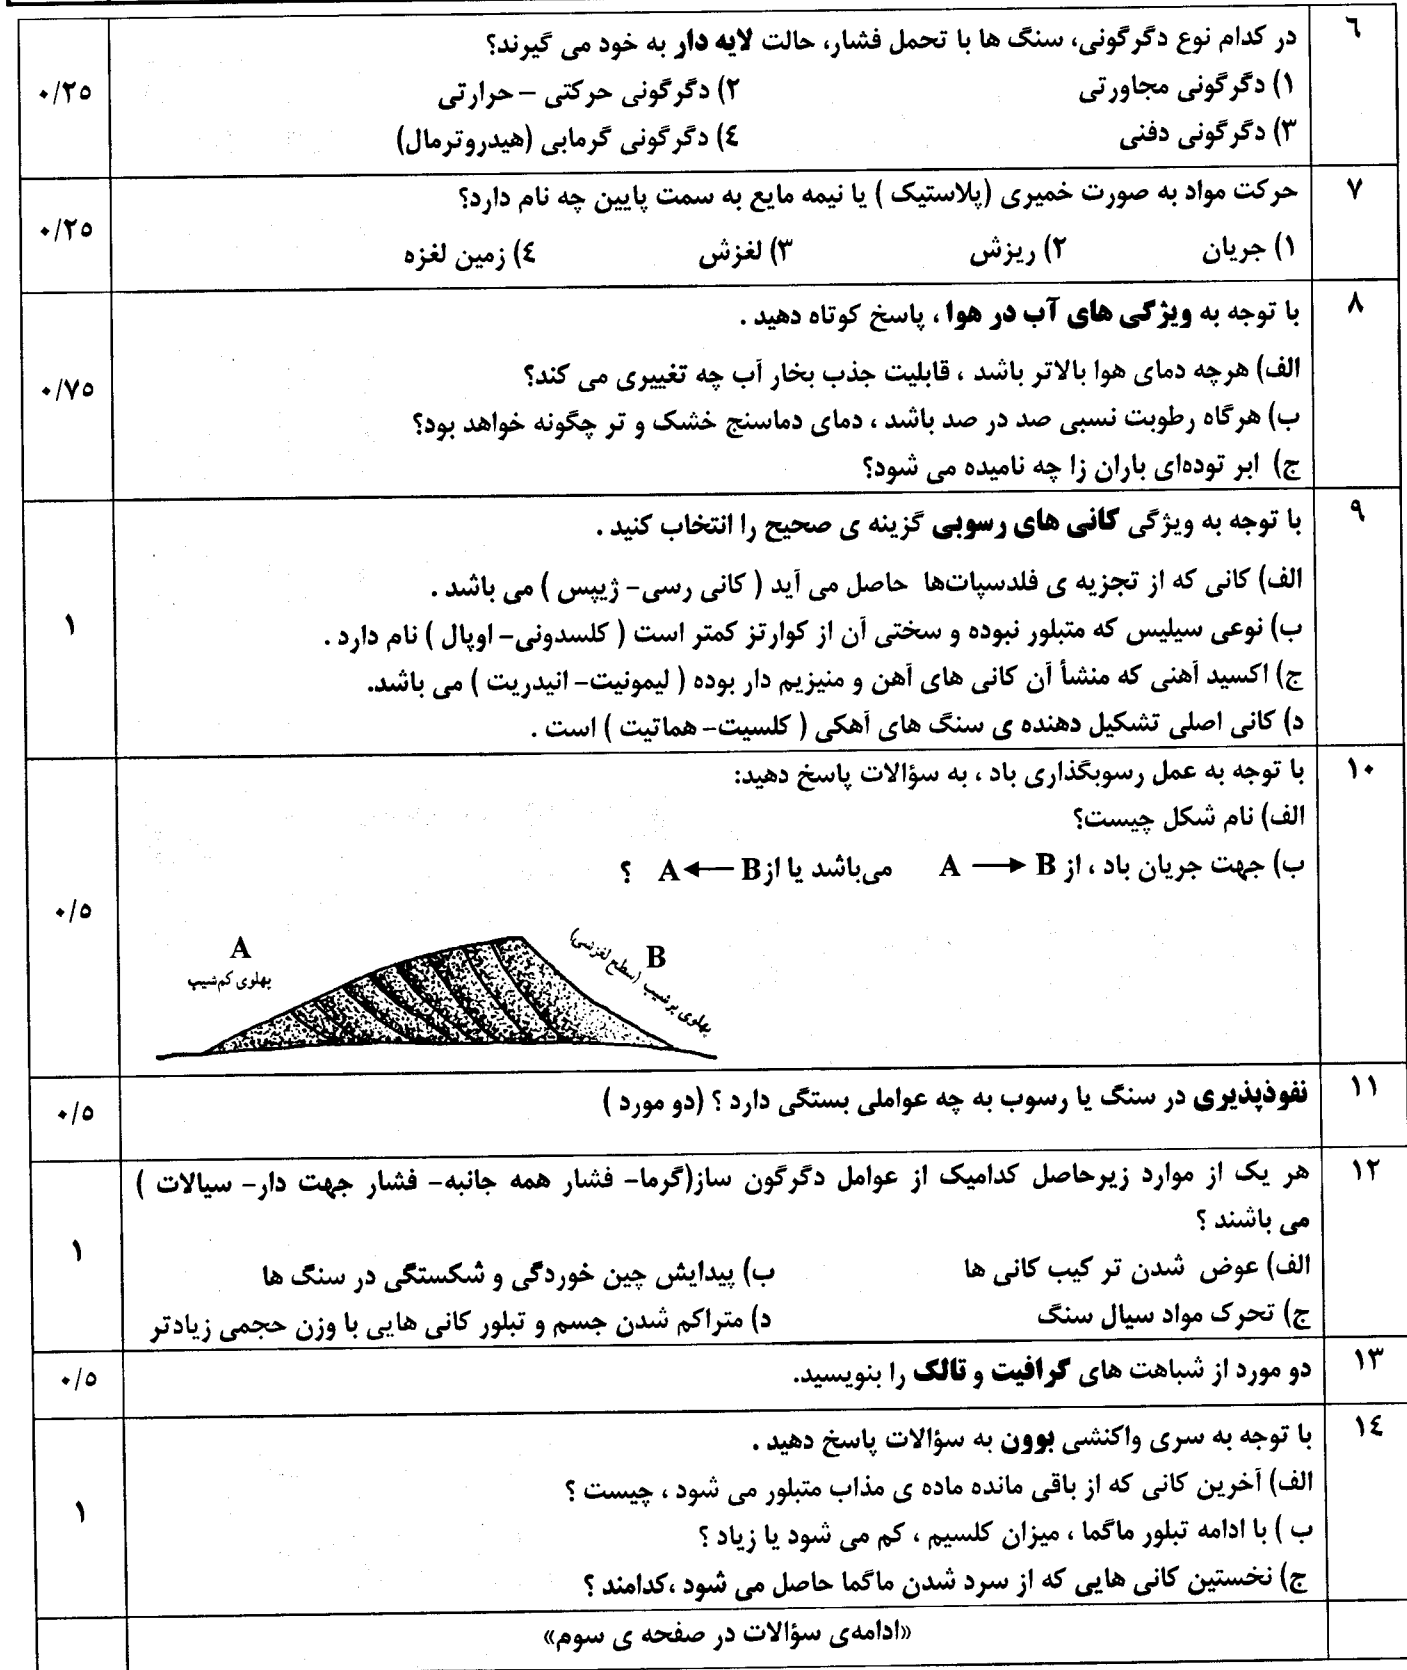 ۶
در کدام نوع دگرگونی، سنگ ها با تحمل فشار، حالت لایه دار به خود می گیرند؟
۱) دگرگونی مجاورتی ۲) دگرگونی حرکتی – حرارتی
۳) دگرگونی دفنی ۴) دگرگونی گرمابی (هیدروترمال)
۰/۲۵
۷
حرکت مواد به صورت خمیری (پلاستیک ) یا نیمه مایع به سمت پایین چه نام دارد؟
۱) جریان ۲) ریزش ۳) لغزش ۴) زمین لغزه
۰/۲۵
۸
با توجه به ویژگی های آب در هوا ، پاسخ کوتاه دهید .
الف) هرچه دمای هوا بالاتر باشد ، قابلیت جذب بخار آب چه تغییری می کند؟
ب) هرگاه رطوبت نسبی صد در صد باشد ، دمای دماسنج خشک و تر چگونه خواهد بود؟
ج) ابر توده‌ای باران زا چه نامیده می شود؟
۰/۷۵
۹
با توجه به ویژگی کانی های رسوبی گزینه ی صحیح را انتخاب کنید .
الف) کانی که از تجزیه ی فلدسپات‌ها حاصل می آید ( کانی رسی- ژیپس ) می باشد .
ب) نوعی سیلیس که متبلور نبوده و سختی آن از کوارتز کمتر است ( کلسدونی- اوپال ) نام دارد .
ج) اکسید آهنی که منشأ آن کانی های آهن و منیزیم دار بوده ( لیمونیت- انیدریت ) می باشد.
د) کانی اصلی تشکیل دهنده ی سنگ های آهکی ( کلسیت- هماتیت ) است .
۱
۱۰
با توجه به عمل رسوبگذاری باد ، به سؤالات پاسخ دهید:
الف) نام شکل چیست؟
ب) جهت جریان باد ، از A ⟶ B می‌باشد یا از A ⟵ B ؟
A
پهلوی کم‌شیب
B
پهلوی پرشیب (سطح لغزشی)
۰/۵
۱۱
نفوذپذیری در سنگ یا رسوب به چه عواملی بستگی دارد ؟ (دو مورد )
۰/۵
۱۲
هر یک از موارد زیرحاصل کدامیک از عوامل دگرگون ساز(گرما- فشار همه جانبه- فشار جهت دار- سیالات )
می باشند ؟
الف) عوض شدن تر کیب کانی ها ب) پیدایش چین خوردگی و شکستگی در سنگ ها
ج) تحرک مواد سیال سنگ د) متراکم شدن جسم و تبلور کانی هایی با وزن حجمی زیادتر
۱
۱۳
دو مورد از شباهت های گرافیت و تالک را بنویسید.
۰/۵
۱۴
با توجه به سری واکنشی بوون به سؤالات پاسخ دهید .
الف) آخرین کانی که از باقی مانده ماده ی مذاب متبلور می شود ، چیست ؟
ب ) با ادامه تبلور ماگما ، میزان کلسیم ، کم می شود یا زیاد ؟
ج) نخستین کانی هایی که از سرد شدن ماگما حاصل می شود ،کدامند ؟
۱
«ادامه‌ی سؤالات در صفحه ی سوم»